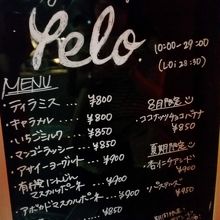 yelo
10:00-29:00
(Lo: 28:30)
MENU
・ティラミス ¥800
・キャラメル ¥800
・いちごミルク ¥850
・マンゴーラッシー ¥850
・アサイーヨーグルト ¥900
・有機にんじん
マスカルポーネ ¥900
・アボカドマスカルポーネ ¥900
8月限定
・ココナッツチョコバナナ
¥850
夏期限定
¥900
¥850